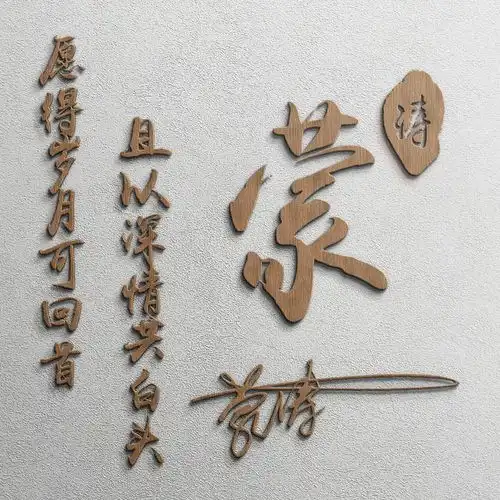 愿得岁月可回首
且以深情共白头
蒙
涛
蒙涛